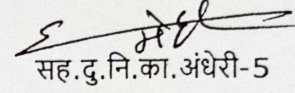 सह.दु.नि.का.अंधेरी-5